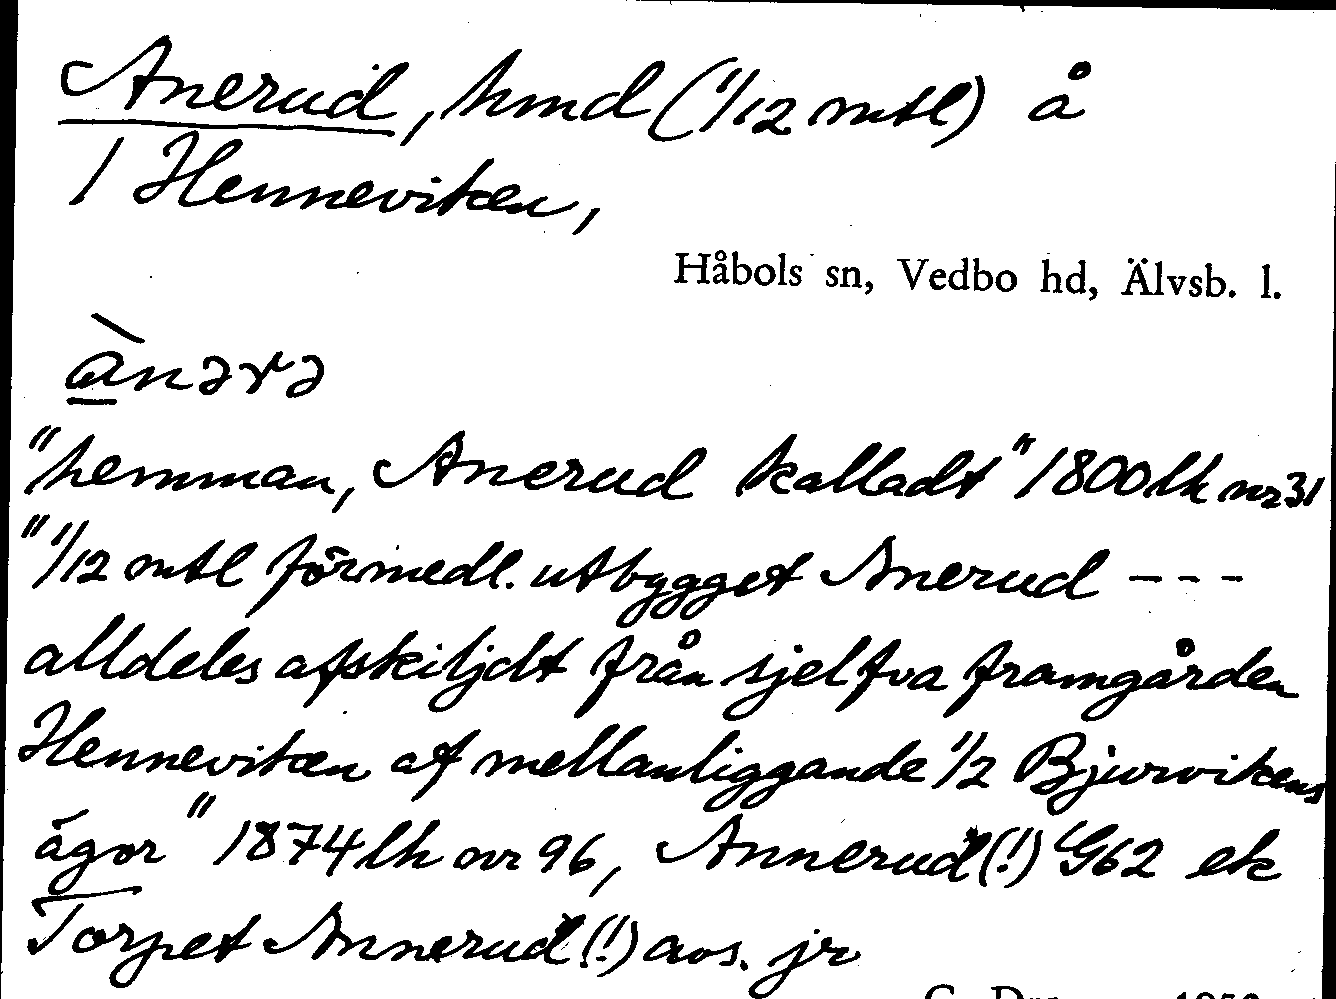 Anerud, hmd (1/12 mtl) å
1 Henneviken,
Håbols sn, Vedbo hd, Älvsb. l.
ànərə
"hemman, Anerud kalladt" 1800 lh nr 31
"1/12 mtl förmedl. utbygget Anerud ---
alldeles afskiljdt från sjelfva framgården
Henneviken af mellanliggande 1/2 Bjurvikens
ägor" 1874 lh nr 96, Annerud (!) G62 ek
Torpet Annerud (!) avs. jr